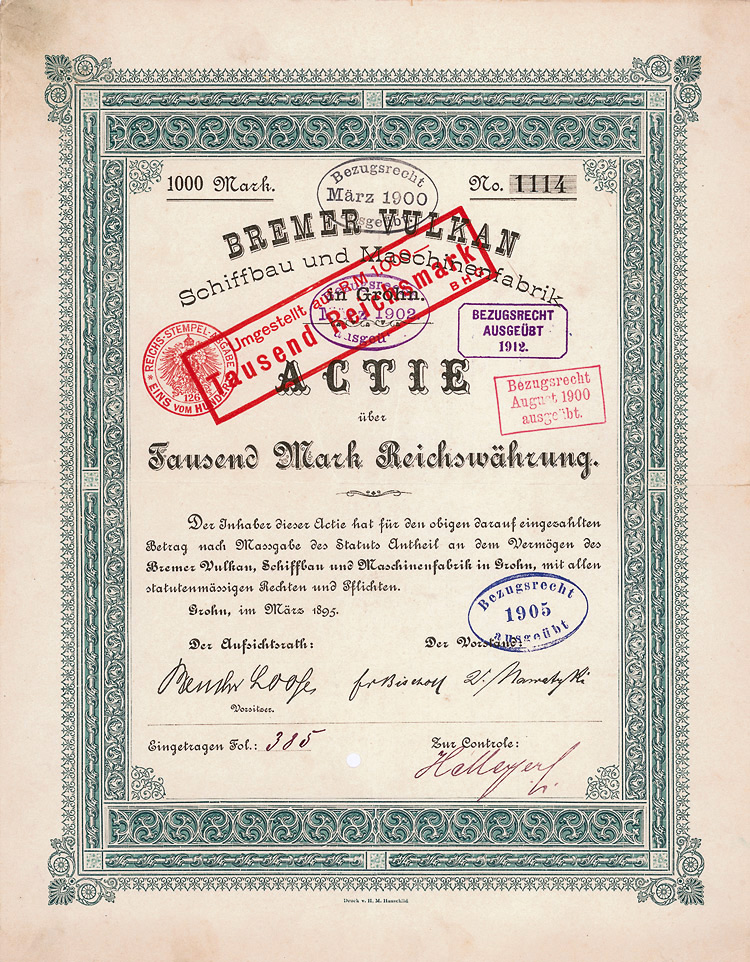 1000 Mark.
No. 1114
Bezugsrecht
März 1900
ausgeübt
BREMER VULKAN
Schiffbau und Maschinenfabrik
in Grohn.
Umgestellt auf RM 1000.—
Tausend Reichsmark
Bezugsrecht
März 1902
ausgeübt
BEZUGSRECHT
AUSGEÜBT
1912.
REICHS-STEMPEL-ABGABE
EINS VOM HUNDERT
126
ACTIE
Bezugsrecht
August 1900
ausgeübt.
über
Tausend Mark Reichswährung.
Der Inhaber dieser Actie hat für den obigen darauf eingezahlten
Betrag nach Massgabe des Statuts Antheil an dem Vermögen des
Bremer Vulkan, Schiffbau und Maschinenfabrik in Grohn, mit allen
statutenmässigen Rechten und Pflichten.
Grohn, im März 1895.
Bezugsrecht
1905
ausgeübt
Der Aufsichtsrath:
Der Vorstand:
Vorsitzer.
Eingetragen Fol.: 385
Zur Controle:
Druck v. H. M. Hauschild